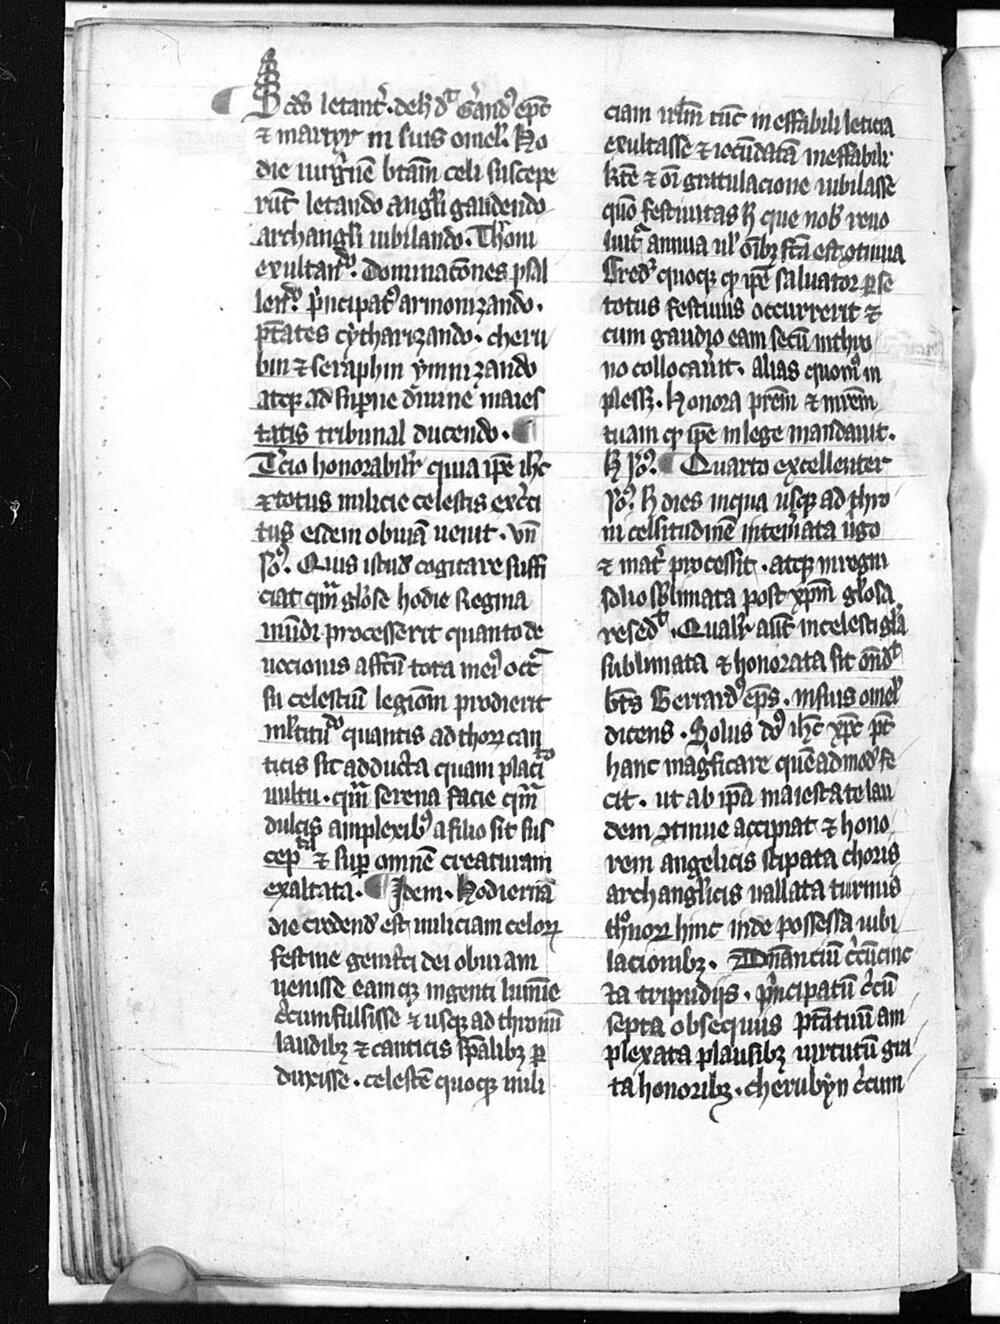 Scdo letantͬ. de h̄ dͭ Gͥardꝰ ep̄c
⁊ martyr in suis omel̓ Ho
die uirginē btām celi suscepe
rūt letando angl̓i gaudendo
archangl̓i iubilando. Thꝛoni
exultando. dominacōnes psal
lendo. pͥncipatꝰ armonizando.
p̄tates cytharizando. cheru
bin ⁊ seraphin ymnizando
atqꝫ ad sup̄ne diuine maies
tatis tribunal ducendo.
Tͨcio honorabilr̓ quia ip̄e ih̄c
⁊ totus milicie celestis excͥci
tus eidem obuiā uenit. vn̄
Quis istud cogitare suffi
ciat qͣm gl̓ose hodie Regina
mūdi processerit quanto de
uocionis affc̄u tota in eiꝰ occͬ
su celestiū legionū prodierit
ml̓titudo quantis ad thoꝝ can
ticis sit adducta quam placito
uultu. qͣm serena facie qͣm
dulcis amplexibꝰ a filio sit sus
cepta ⁊ sup̄ omnē creaturam
exaltata. Idem. Hodiernā
die credendū est miliciam celoꝝ
festine genitͥci dei obuiam
uenisse eamqꝫ ingenti lumīe
cͥcumfulsisse ⁊ usqꝫ ad thronū
laudibꝫ ⁊ canticis sp̄alibꝫ ꝑ
duxisse. celestē quoqꝫ mili
ciam irl̄m tūc ineffabili leticia
exultasse ⁊ iocūdatā ineffabili
k̄te ⁊ oī gratulacione iubilasse
qm̄ festiuitas h̄ que nob̓ reuo
luitͬ annua ul̓ oībꝫ scā est ꝯtinua
Credͬ quoqꝫ ꝙ ip̄e saluator ꝑ se
totus festiuus occurrerit ⁊
cum gaudio eam secū in thro
no collocauit. alias quomͦ in
plessꝫ. Honora prēm ⁊ mrēm
tuam ꝙ ip̄e in lege mandauit.
Quarto excellenter
h̄ dies inqua usqꝫ ad thro
ni celsitudinē intemͥata uͥgo
⁊ matͬ processit. atqꝫ in regni
solio sb̓limata post xp̄m gl̓osa
resedͭ. Qualr̓ aūt in celesti gl̓ia
sublimata ⁊ honorata sit on̄dͭ
bt̄s Gerrardꝰ ep̄s. in suis omel̓
dicens. Solus dꝰ ih̄c xp̄c p̄t
hanc mag̓ficare quēadmodͫ fe
cit. ut ab ip̄a maiestate lau
dem ꝯtinue accipiat ⁊ hono
rem angelicis stipata choris
archangl̓icis uallata turmis
thͦnoꝝ hinc inde possessa iubi
lacionibꝫ. Dn̄anciū cͥcūcinc
ta tripudijs. pͥncipatū cͥcū
septa obsequiis p̄tātuū am
plexata plausibꝫ uirtutū gra
ta honoribꝫ. cherubyn cͥcum